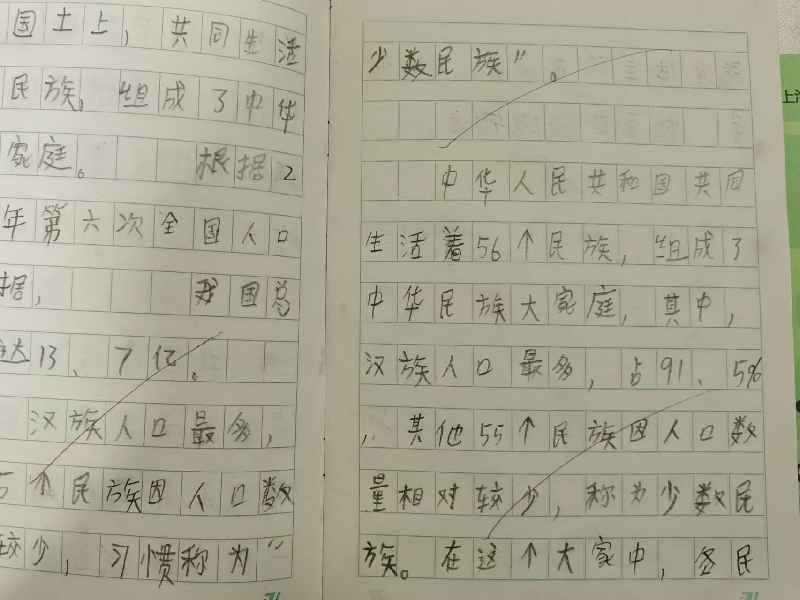 国土上，共同生活
民族，组成了中华
家庭。根据2
年第六次全国人口
据，我国总
达13、7亿。
汉族人口最多，
5个民族因人口数
较少，习惯称为“
少数民族”。
中华人民共和国共同
生活着56个民族，组成了
中华民族大家庭，其中，
汉族人口最多，占91、5%
，其他55个民族因人口数
量相对较少，称为少数民
族。在这个大家中，各民
上海